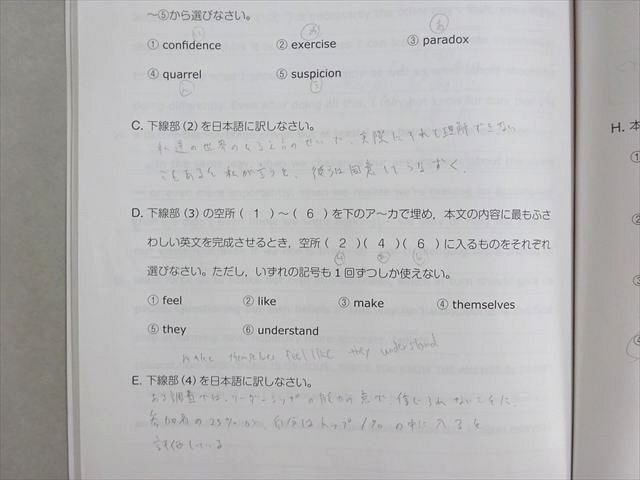 ～⑤から選びなさい。
① confidence ② exercise ③ paradox
④ quarrel ⑤ suspicion
C. 下線部（2）を日本語に訳しなさい。
D. 下線部（3）の空所（ 1 ）～（ 6 ）を下のア～カで埋め，本文の内容に最もふさ
わしい英文を完成させるとき，空所（ 2 ）（ 4 ）（ 6 ）に入るものをそれぞれ
選びなさい。ただし，いずれの記号も1回ずつしか使えない。
① feel ② like ③ make ④ themselves
⑤ they ⑥ understand
make themselves feel like they understand
E. 下線部（4）を日本語に訳しなさい。
ある調査では、リーダーシップの能力の点で、信じられないことに、
参加者の25%が、自分はトップ1%の中に入ると
評価している
H. 本